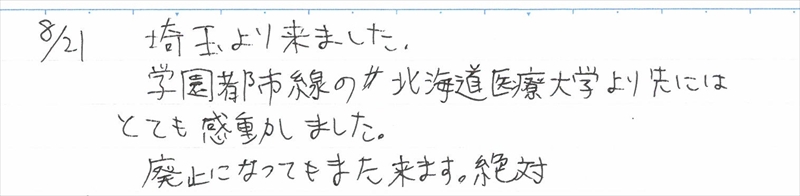 8/21 埼玉より来ました.
学園都市線の〃北海道医療大学より先には
とても感動しました。
廃止になってもまた来ます。絶対